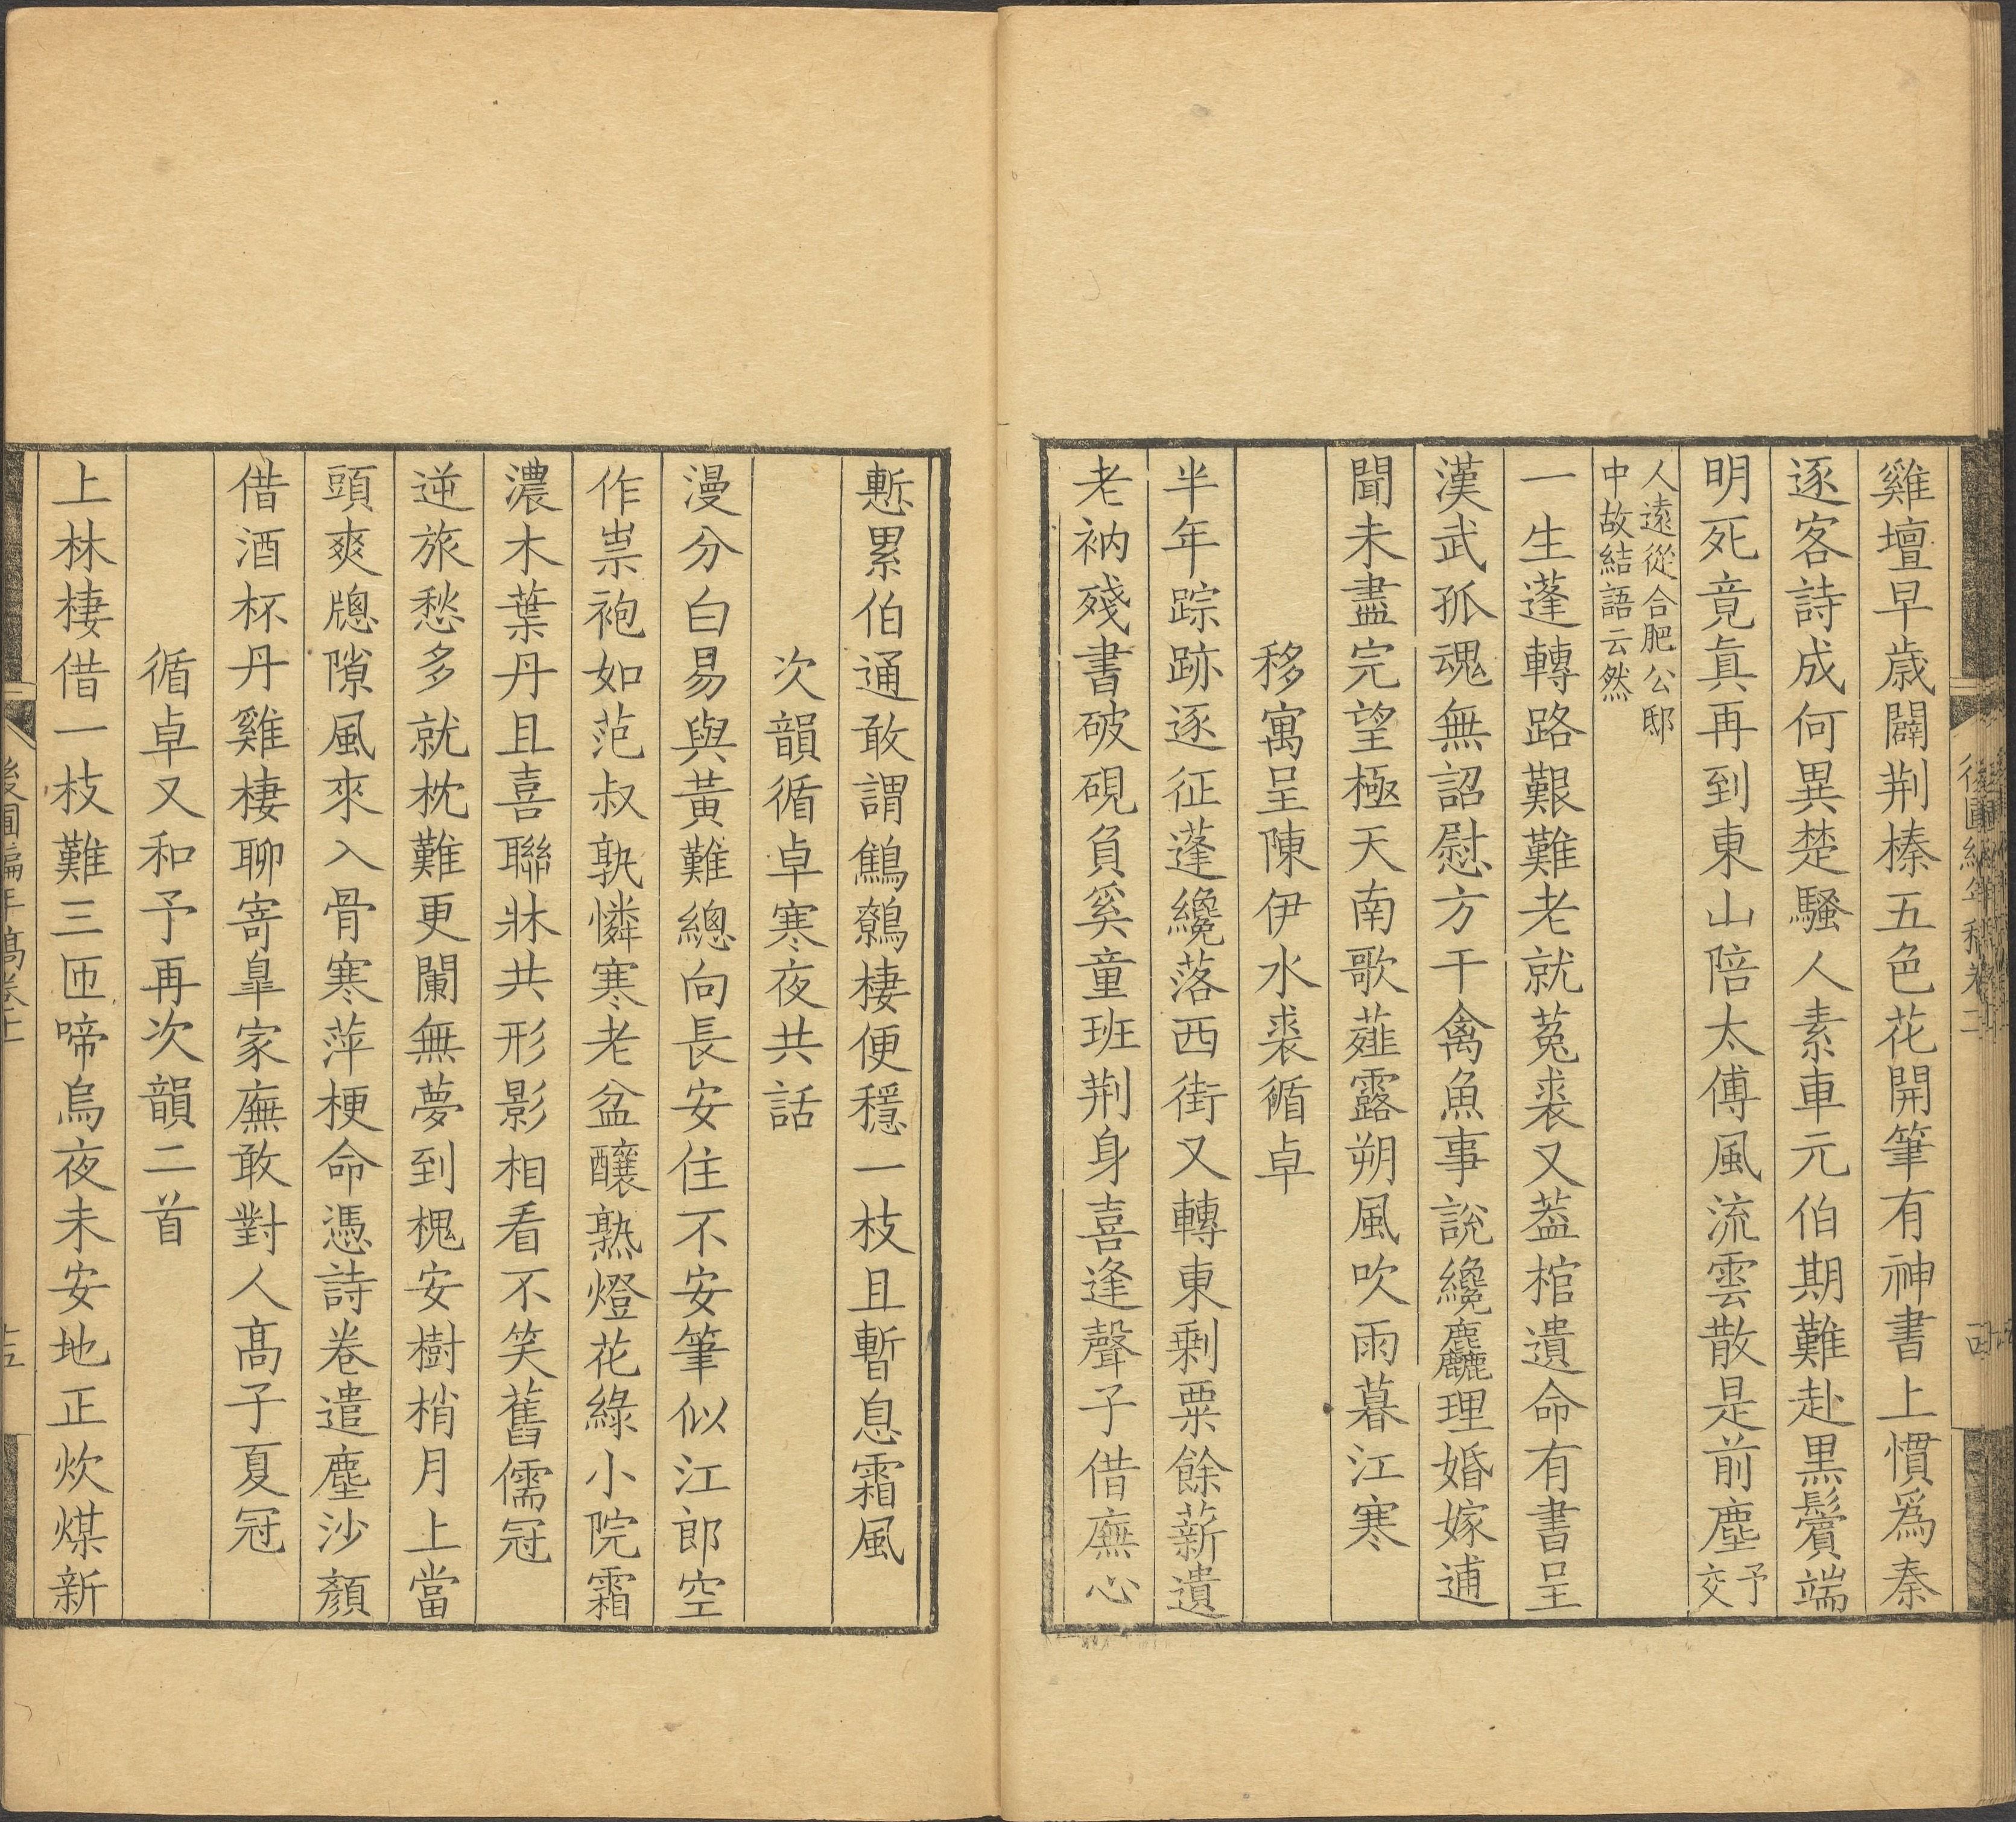 雞壇早歲闢荆榛五色花開筆有神書上慣爲秦
逐客詩成何異楚騷人素車元伯期難赴黒鬢端
明死竟眞再到東山陪太傅風流雲散是前塵予交
人遠從合肥公邸
中故結語云然
一生蓬轉路艱難老就菟裘又葢棺遺命有書呈
漢武孤魂無詔慰方干禽魚事說纔麤理婚嫁逋
聞未盡完望極天南歌薤露朔風吹雨暮江寒
移寓呈陳伊水裘循卓
半年踪跡逐征蓬纔落西街又轉東剩粟餘薪遺
老衲殘書破硯負奚童班荆身喜逢聲子借廡心
慙累伯通敢謂鷦鷯棲便穩一枝且暫息霜風
次韻循卓寒夜共話
漫分白易與黃難總向長安住不安筆似江郎空
作祟袍如范叔孰憐寒老盆釀熟燈花綠小院霜
濃木葉丹且喜聯牀共形影相看不笑舊儒冠
逆旅愁多就枕難更闌無夢到槐安樹梢月上當
頭爽牕隙風來入骨寒萍梗命憑詩卷遣塵沙顏
借酒杯丹雞棲聊寄臯家廡敢對人高子夏冠
循卓又和予再次韻二首
上林棲借一枝難三匝啼烏夜未安地正炊煤新
後圃編年稿卷二
後圃編年稿卷二
十五